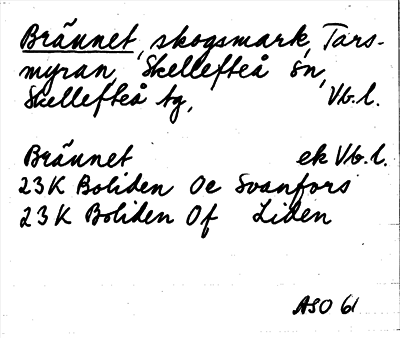 Brännet, skogsmark, Tars-
myran, Skellefteå sn,
Skellefteå tg, Vb.l.
Brännet ek Vb.l.
23K Boliden Oe Svanfors
23K Boliden Of Liden
ASO 61